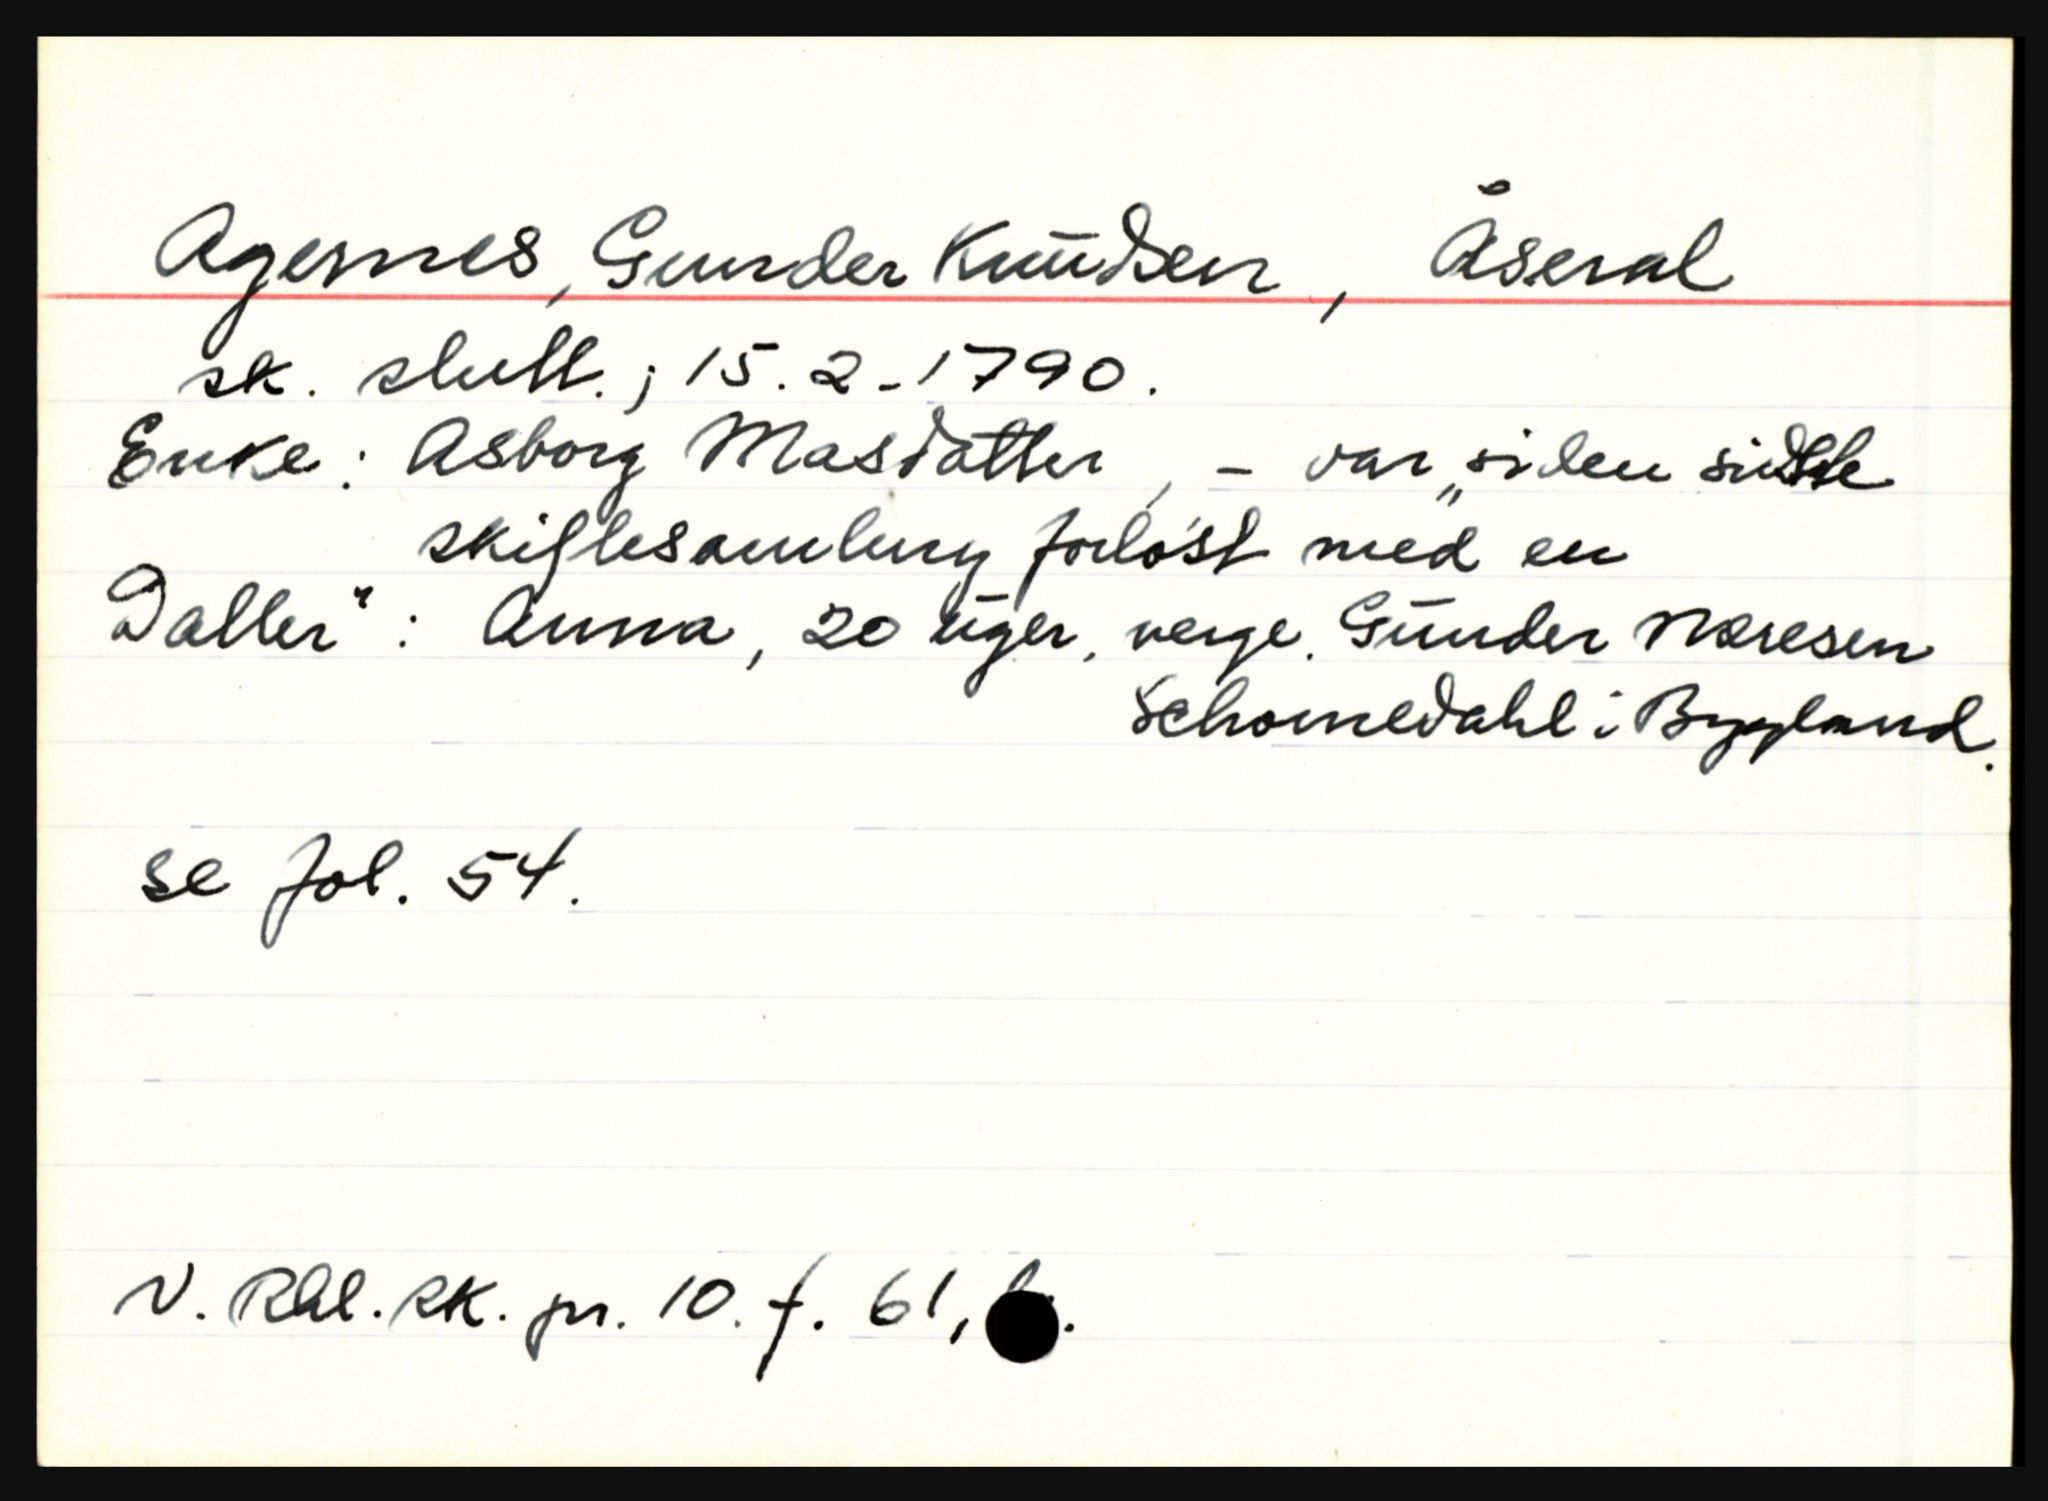 Agernes, Gunder Knudsen, Åseral
sk. slutt.; 15.2-1790.
Enke: Asborg Masdatter, - var „siden sidste
skiftesamling forløst med en
Datter": Anna, 20 uger, verge. Gunder Næresen
Schomedahl i Bygland.
se fol. 54.
N. Rbl. sk. pr. 10. f. 61,